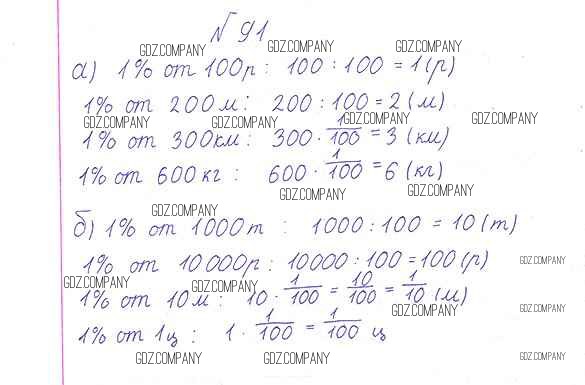 № 91
а) 1% от 100р : 100 : 100 = 1(р)
1% от 200 м : 200 : 100 = 2 (м)
1% от 300км : 300 · 1/100 = 3 (км)
1% от 600 кг : 600 · 1/100 = 6 (кг)
б) 1% от 1000 т : 1000 : 100 = 10 (т)
1% от 10 000р : 10000 : 100 = 100 (р)
1% от 10 м : 10 · 1/100 = 10/100 = 1/10 (м)
1% от 1ц : 1 · 1/100 = 1/100 ц
GDZ.COMPANY GDZ.COMPANY GDZ.COMPANY
GDZ.COMPANY GDZ.COMPANY GDZ.COMPANY GDZ.COMPANY
GDZ.COMPANY GDZ.COMPANY
GDZ.COMPANY
GDZ.COMPANY
GDZ.COMPANY GDZ.COMPANY
GDZ.COMPANY GDZ.COMPANY
GDZ.COMPANY GDZ.COMPANY GDZ.COMPANY